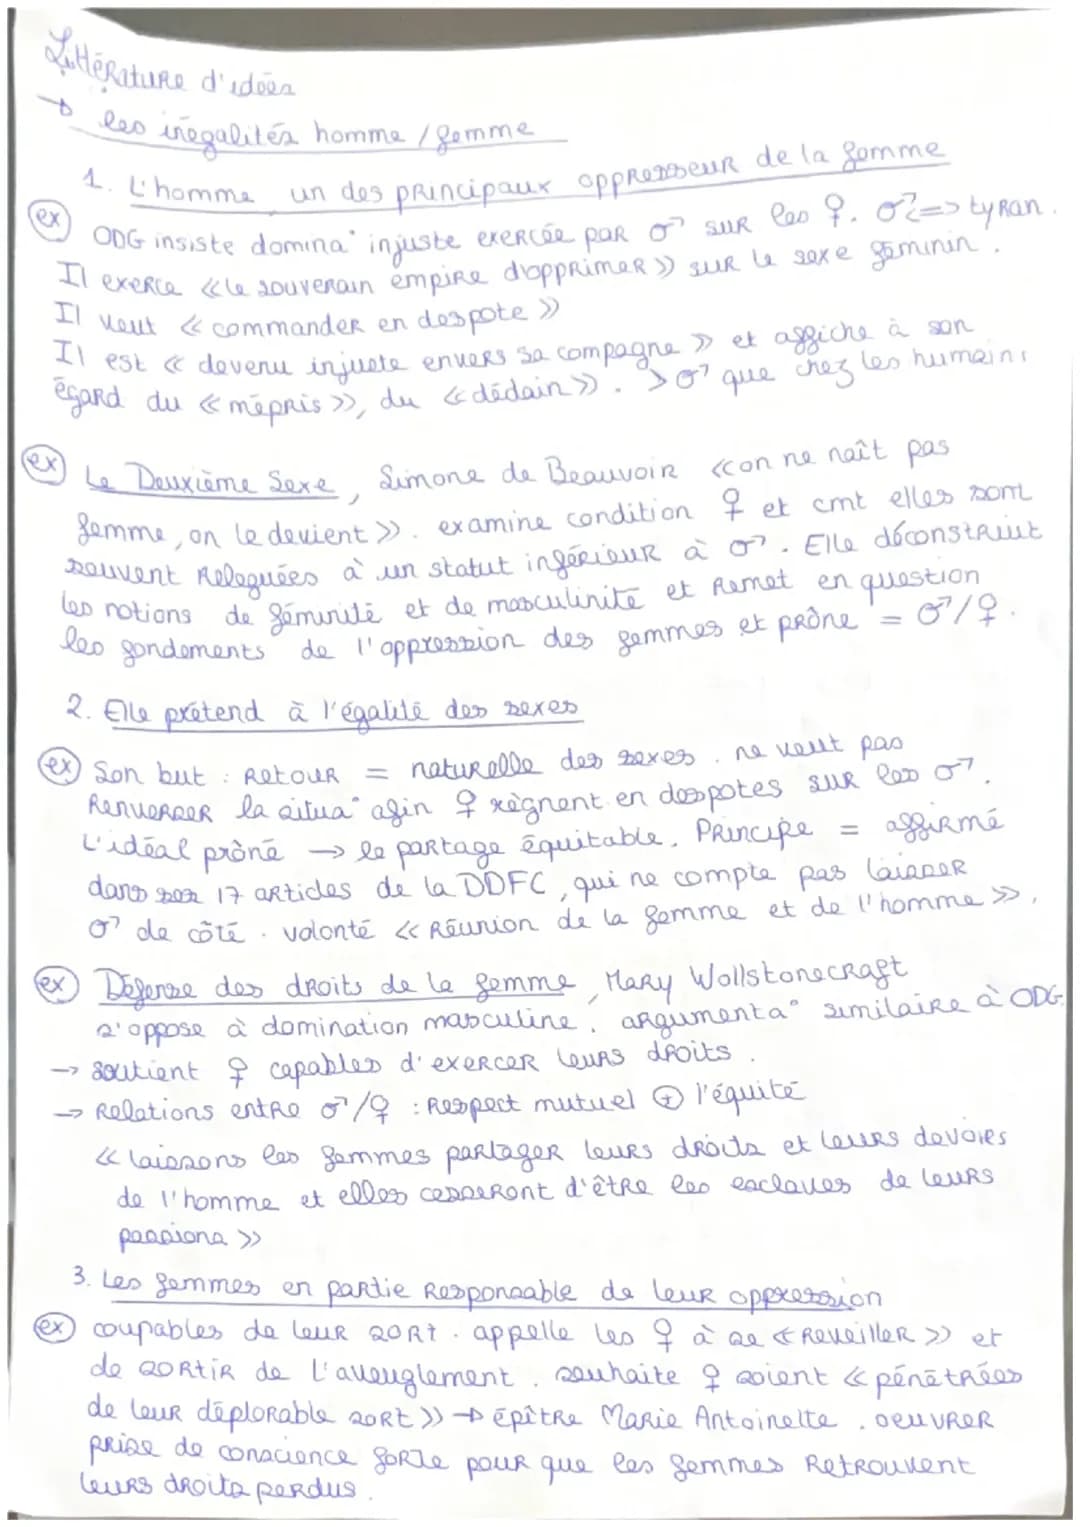 Littérature d'idées
→ les inégalités homme / femme
1. L'homme, un des principaux oppresseur de la femme
ex ODG insiste domina° injuste exercée par ♂ sur les ♀. ♂ => tyran.
Il exerce «le souverain empire d'opprimer» sur le sexe féminin.
Il veut « commander en despote »
Il est « devenu injuste envers sa compagne » et affiche à son
égard du « mépris », du « dédain ». > ♂ que chez les humains
ex Le Deuxième Sexe, Simone de Beauvoir «on ne naît pas
femme, on le devient ». examine condition ♀ et cmt elles sont
souvent reléguées à un statut inférieur à ♂. Elle déconstruit
les notions de féminité et de masculinité et remet en question
les fondements de l'oppression des femmes et prône = ♂/♀.
2. Elle prétend à l'égalité des sexes
ex Son but : retour = naturelle des sexes. ne veut pas
renverser la situa° afin ♀ règnent en despotes sur les ♂.
L'idéal prôné → le partage équitable. Principe = affirmé
dans ses 17 articles de la DDFC, qui ne compte pas laisser
♂ de côté. volonté « réunion de la femme et de l'homme ».
ex Défense des droits de la femme, Mary Wollstonecraft
s'oppose à domination masculine. argumenta° similaire à ODG
→ soutient ♀ capables d'exercer leurs droits.
→ Relations entre ♂/♀ : Respect mutuel ⊕ l'équité
« laissons les femmes partager leurs droits et leurs devoirs
de l'homme et elles cesseront d'être les esclaves de leurs
passions »
3. Les femmes en partie responsable de leur oppression
ex coupables de leur sort. appelle les ♀ à se « réveiller » et
de sortir de l'aveuglement. souhaite ♀ soient « pénétrées
de leur déplorable sort » → épître Marie Antoinette. oeuvrer
prise de conscience forte pour que les femmes retrouvent
leurs droits perdus.